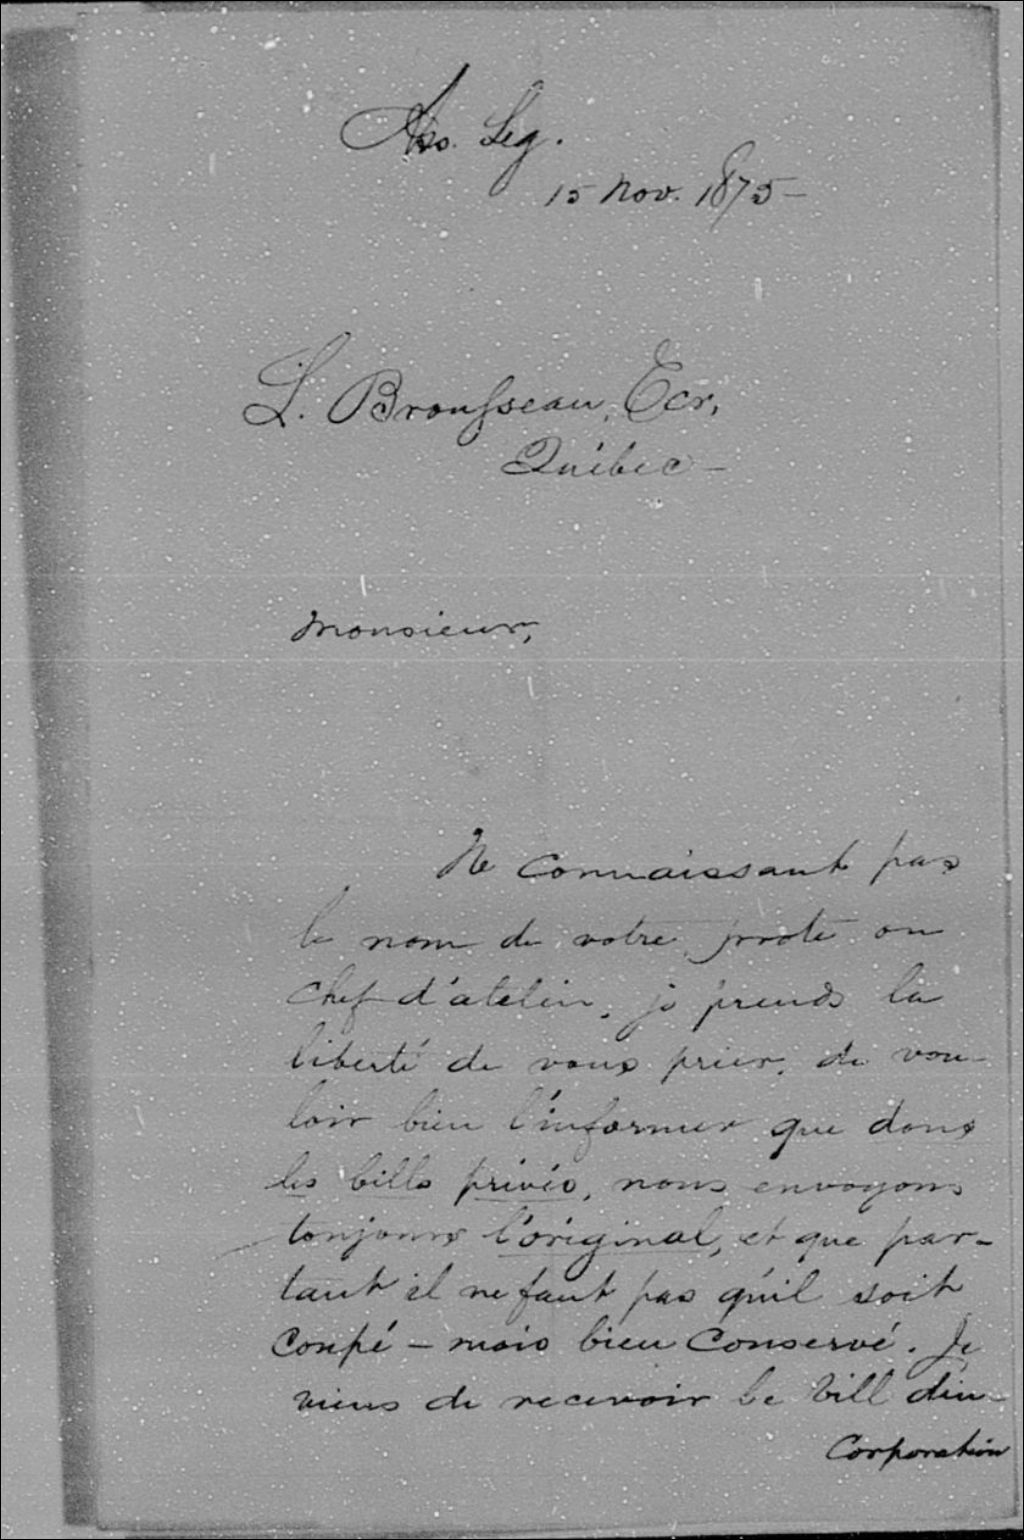 Ass. Leg.
15 Nov. 1875 -
L. Brousseau, Ecr,
Québec -
Monsieur,
Ne connaissant pas
le nom de votre prote ou
chef d'atelier, je prends la
liberté de vous prier, de vou-
loir bien l'informer que dans
les bills privés, nous envoyons
toujours l'original, et que par-
tant il ne faut pas qu'il soit
coupé - mais bien conservé. Je
viens de recevoir le bill d'in-
corporation